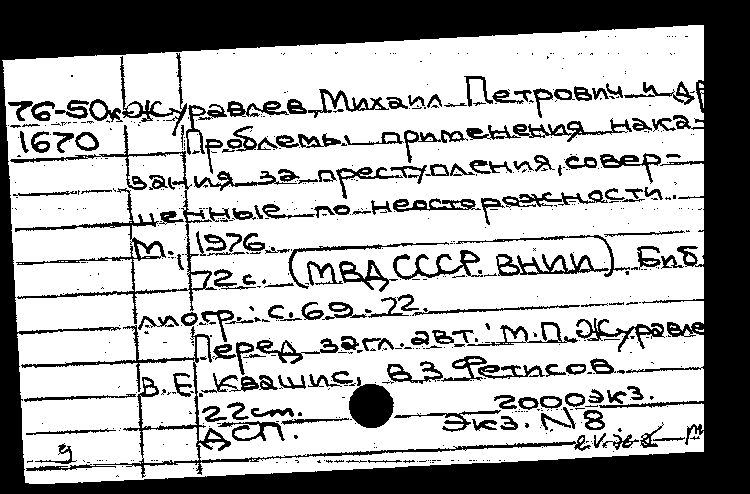 76-50к Журавлев, Михаил Петрович и др
1670 Проблемы применения нака-
зания за преступления, совер-
шенные по неосторожности.
М., 1976.
72 с. (МВД СССР. ВНИИ). Биб-
лиогр.: с. 69-72.
Перед загл. авт.: М.П. Журавле
В. Е. Квашис, В.З. Фетисов.
22 см. 2000 экз.
ДСП. Экз. N 8.
9